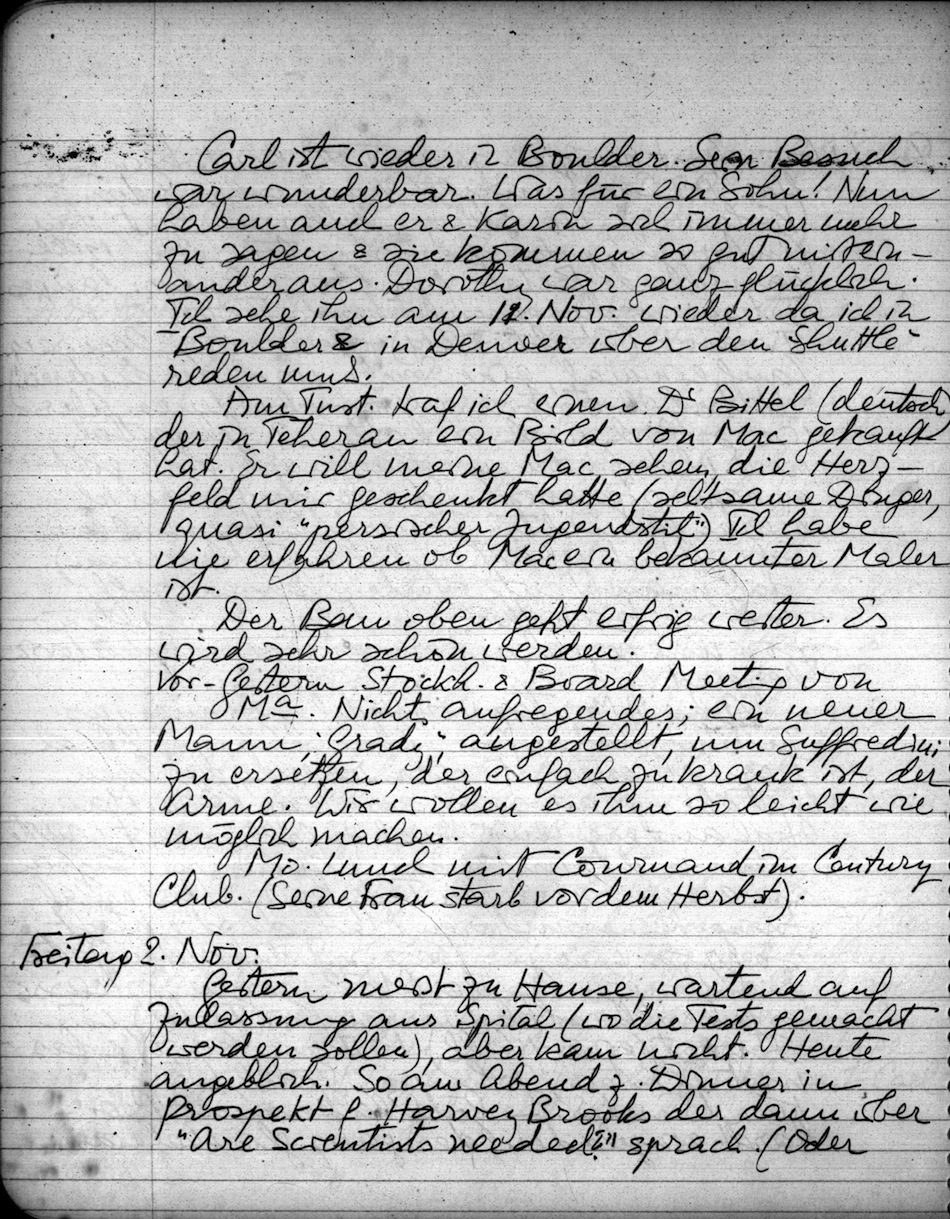 Carl ist wieder in Boulder. Sein Besuch
war wunderbar. Was für ein Sohn! Nun
haben auch er & Karin sich immer mehr
zu sagen & sie kommen so gut mitein-
ander aus. Dorothy war ganz glücklich.
Ich sehe ihn am 12. Nov. wieder da ich in
Boulder & in Denver über den Shuttle
reden muss.
Am Inst. traf ich einen Dr Bittel (deutsch)
der in Teheran ein Bild von Mac gekauft
hat. Er will meine Mac sehen, die Herz-
feld mir geschenkt hatte (seltsame Dinger,
quasi "persischer Jugendstil") Ich habe
nie erfahren ob Mac ein bekannter Maler
ist.
Der Bau oben geht eifrig weiter. Es
wird sehr schön werden.
Vor-gestern Stockh. & Board Meeting von
Ma. Nichts aufregendes; ein neuer
Mann, "Grady", angestellt, um Suffredini
zu ersetzen, der einfach zu krank ist, der
Arme. Wir wollen es ihm so leicht wie
möglich machen.
Mo. Lunch mit Cournand im Century
Club. (Seine Frau starb vor dem Herbst).
Freitag 2. Nov.
Gestern meist zu Hause, wartend auf
Zulassung aus Spital (wo die Tests gemacht
werden sollen), aber kam nicht. Heute
angeblich. So am Abend z. Dinner in
Prospekt f. Harvey Brooks der dann über
"Are Scientists needed?" sprach. (Oder